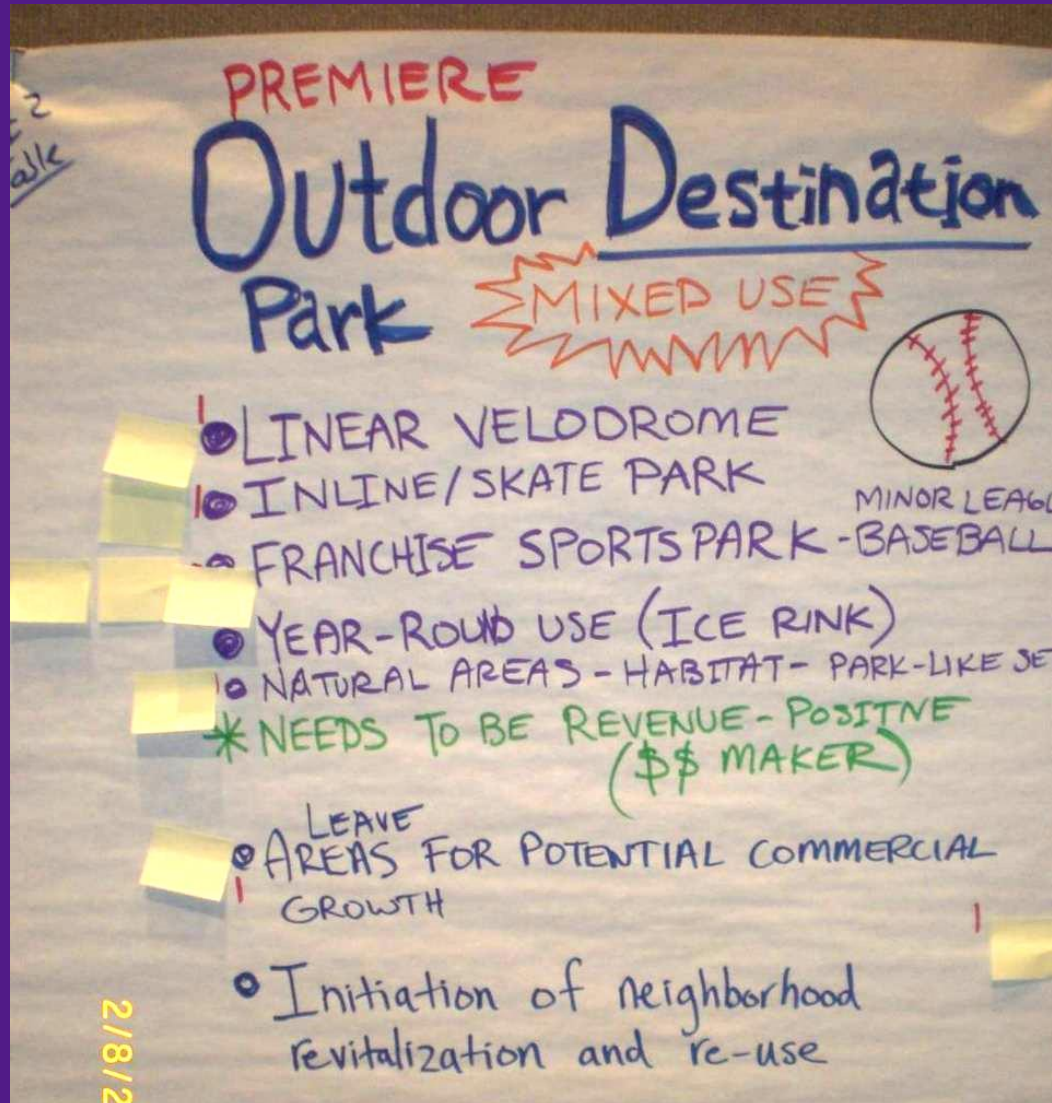 PREMIERE
Outdoor Destination
Park MIXED USE
• LINEAR VELODROME
• INLINE/SKATE PARK
MINOR LEAGU
• FRANCHISE SPORTS PARK - BASEBALL
• YEAR-ROUND USE (ICE RINK)
• NATURAL AREAS - HABITAT - PARK-LIKE SE
* NEEDS TO BE REVENUE-POSITIVE
($$ MAKER)
LEAVE
• AREAS FOR POTENTIAL COMMERCIAL
GROWTH
• Initiation of neighborhood
revitalization and re-use
2/8/2